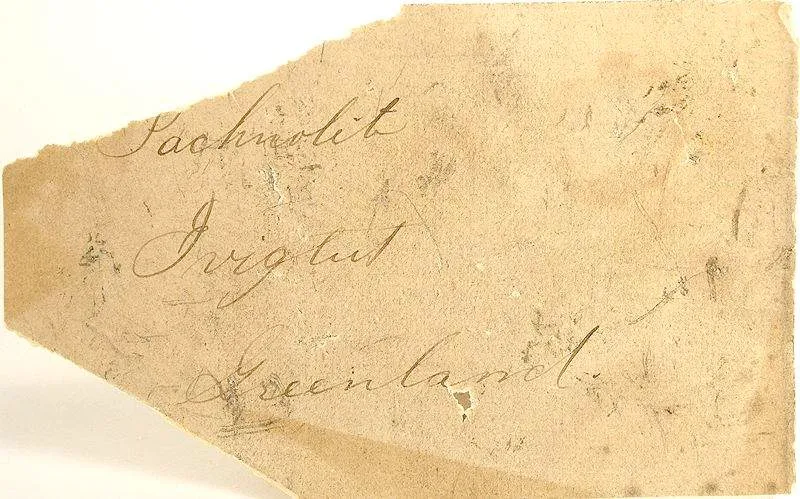 Pachnolit
Ivigtut
Greenland.